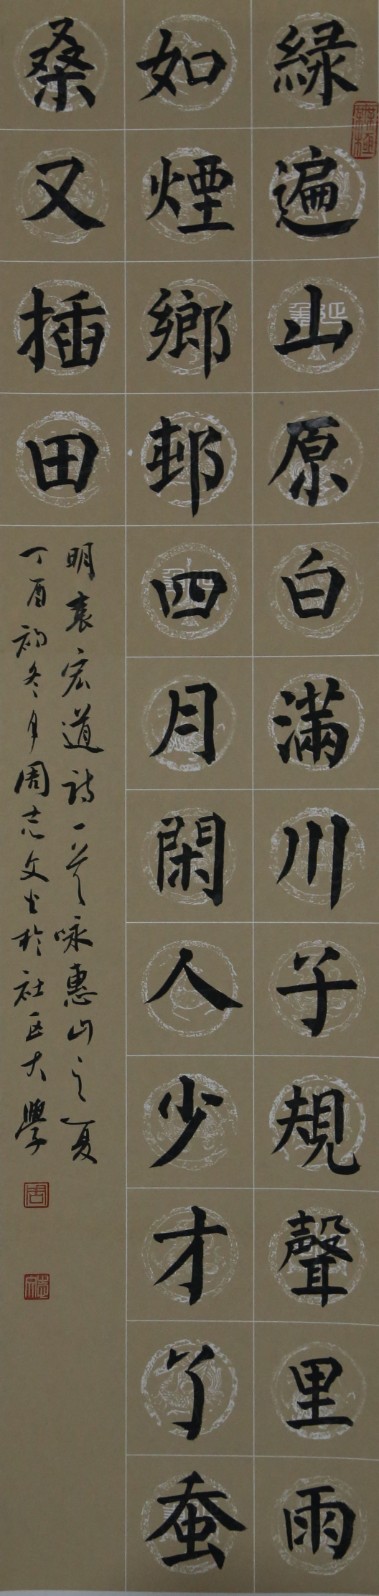 緑遍山原白滿川子規聲里雨
如煙鄉邨四月閑人少才了蚕
桑又插田
明袁宏道詩一首咏惠山之夏
丁酉初冬月周志文书於社区大學